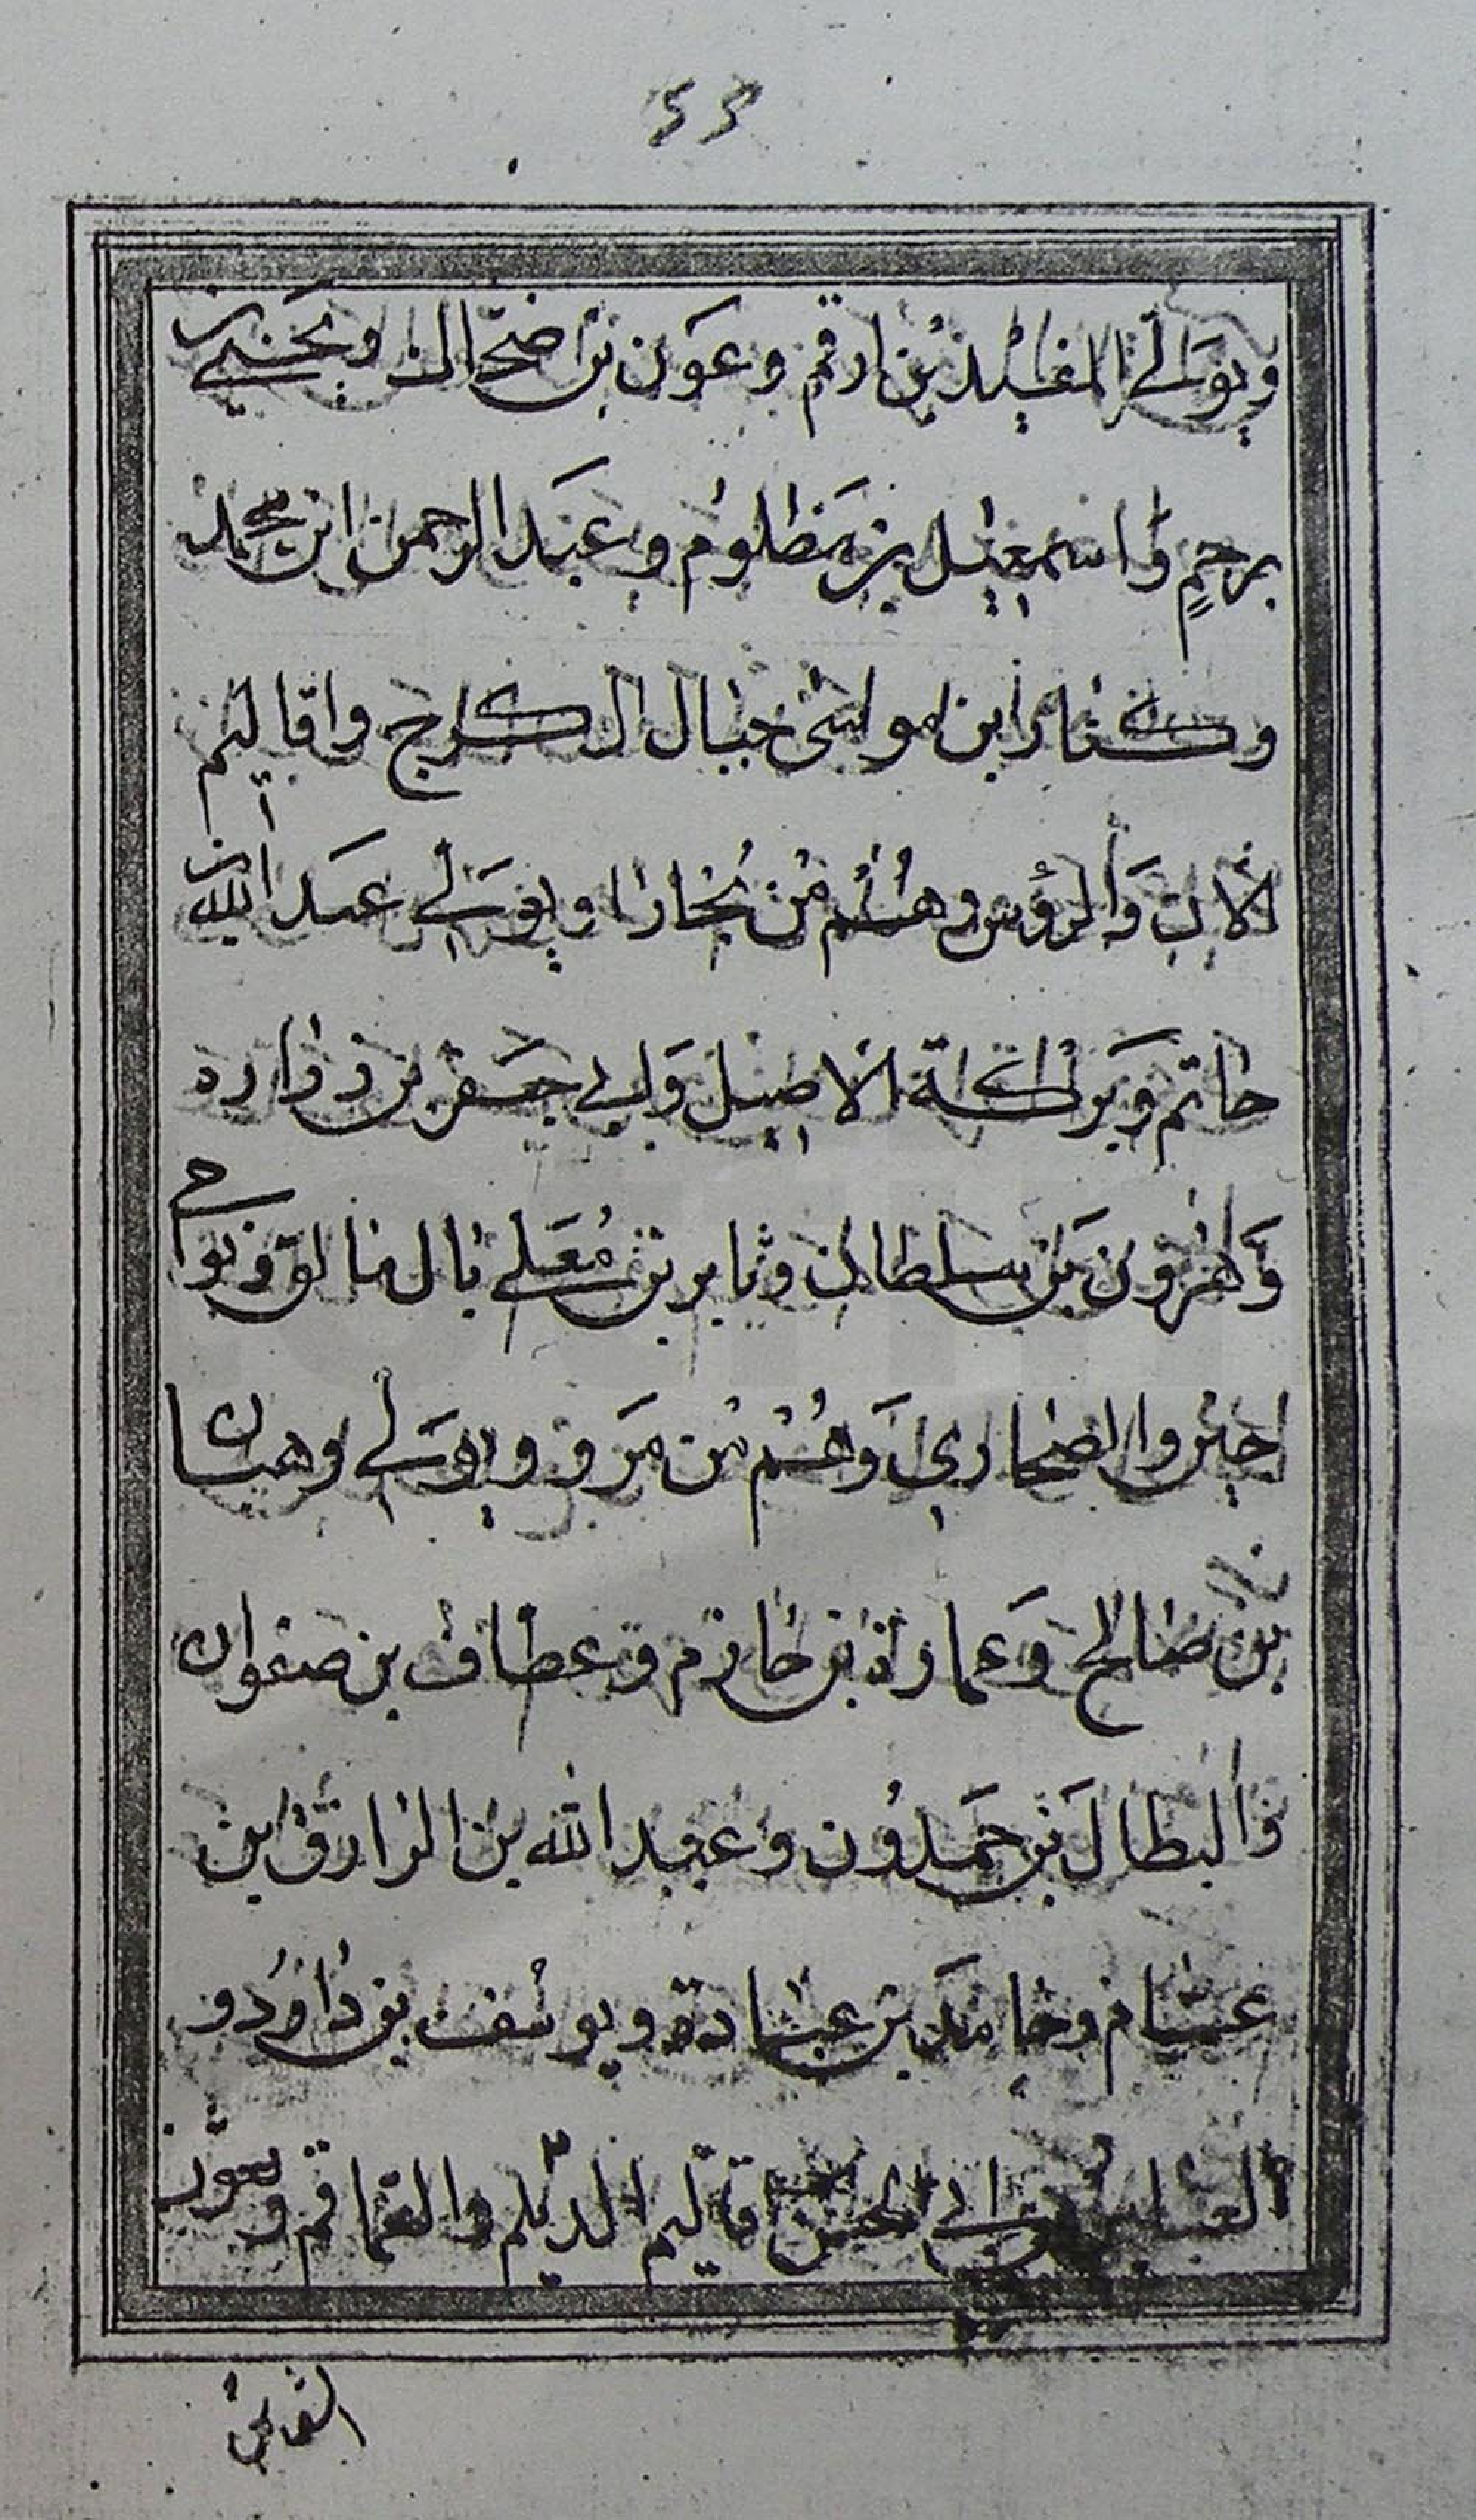 ٤٣
ويوَلي المفيد بن ارقم وعَون بن ضحاك ويحيى بن
برحمٍ واسمعيل بن مظلوم وعبد الرحمن ابن محمد
وكنار ابن مواسى جبال الكرج واقاليم
الابِ والرؤس وهُم من بُخارا ويوَلي عبد الله بن
حاتم وبركاة الاصيل وابي جعفر بن زراره
وهرون بن سلطان وثابر بن مُعَلي بال مالق ونواحي
اخيروا الصحاري وهُم من مَرو ويوَلي وهبان
بن صالح وعمارة بن حازم وعطاف بن صفوان
والبطال بن حَمَدُون وعبد الله بن الرازق بن
عسام وحامد بن عبادة ويوسُف بن داوُد و
العباس ابي الحسن اقاليم الديلم والقماقم
القماقم